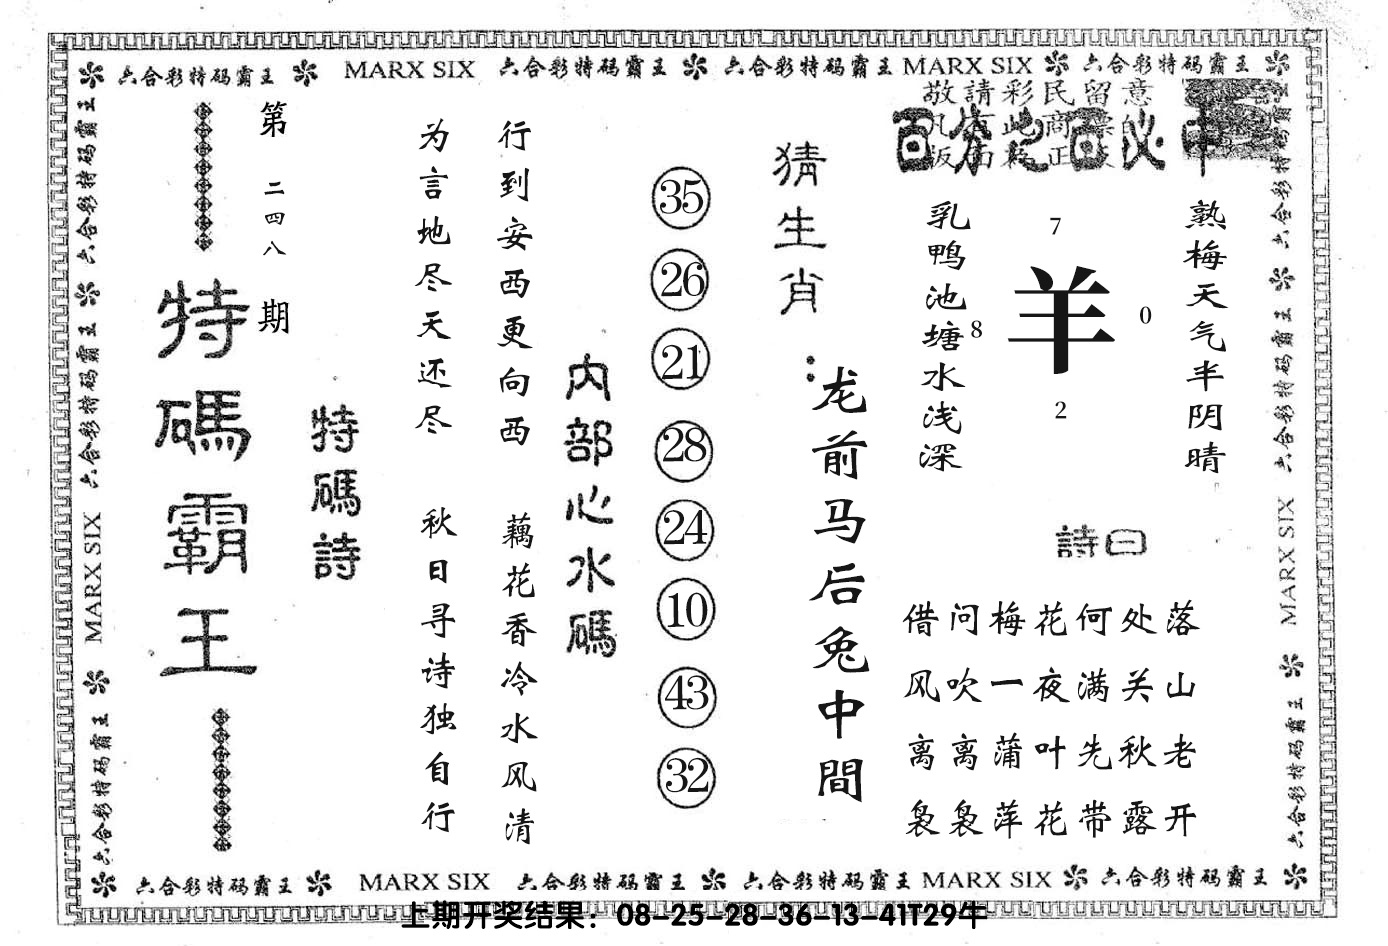 六合彩特码霸王 MARX SIX 六合彩特码霸王 六合彩特码霸王 MARX SIX 六合彩特码霸王
六合彩特码霸王 六合彩特码霸王 MARX SIX 六合彩特码霸王
六合彩特码霸王 六合彩特码霸王 MARX SIX 六合彩特码霸王
敬請彩民留意
百分之百必中
熟梅天气半阴晴
7
8
羊
0
2
乳鸭池塘水浅深
詩曰
借问梅花何处落
风吹一夜满关山
离离蒲叶先秋老
袅袅萍花带露开
猜生肖：
龙前马后兔中間
35
26
21
28
24
10
43
32
内部心水碼
行到安西更向西
藕花香冷水风清
为言地尽天还尽
秋日寻诗独自行
特碼詩
第二四八期
特碼霸王
六合彩特码霸王 MARX SIX 六合彩特码霸王 六合彩特码霸王 MARX SIX 六合彩特码霸王
上期开奖结果：08-25-28-36-13-41T29牛